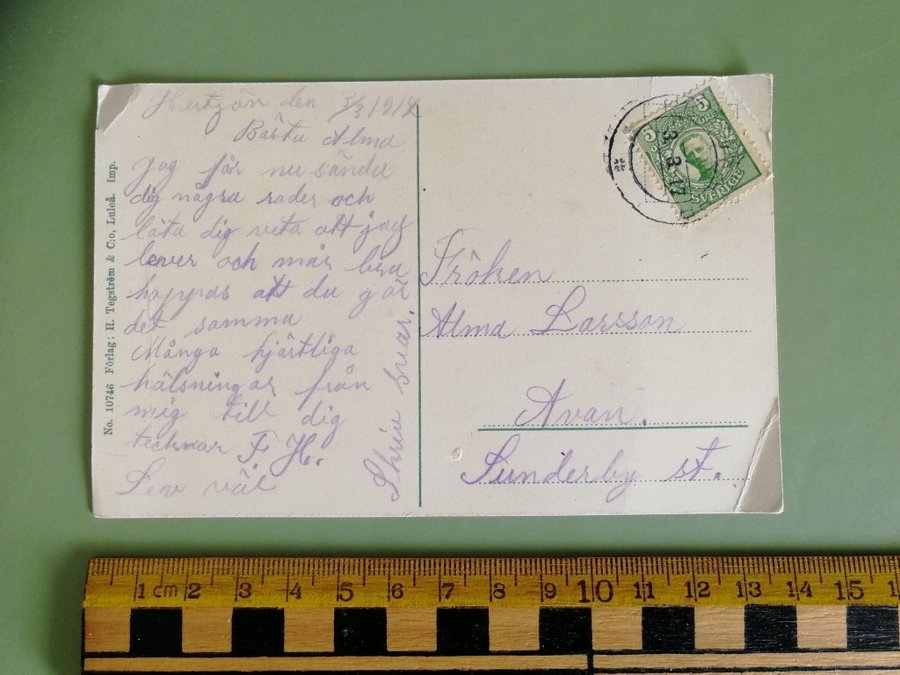 Hertzön den 3/3 1912
Bästa Alma
Jag får nu sända
dig några rader och
låta dig veta att jag
lever och mår bra
hoppas att du gör
det samma
Många hjärtliga
hälsningar från
mig till dig
tecknar F H.
Lev väl
Skriv svar.
No. 10746 Förlag: H. Tegström & C:o, Luleå. imp.
Fröken
Alma Larsson
Avan.
Sunderby st.
5 5
ÖRE
SVERIGE
3 3 12
1 cm 2 3 4 5 6 7 8 9 10 11 12 13 14 15